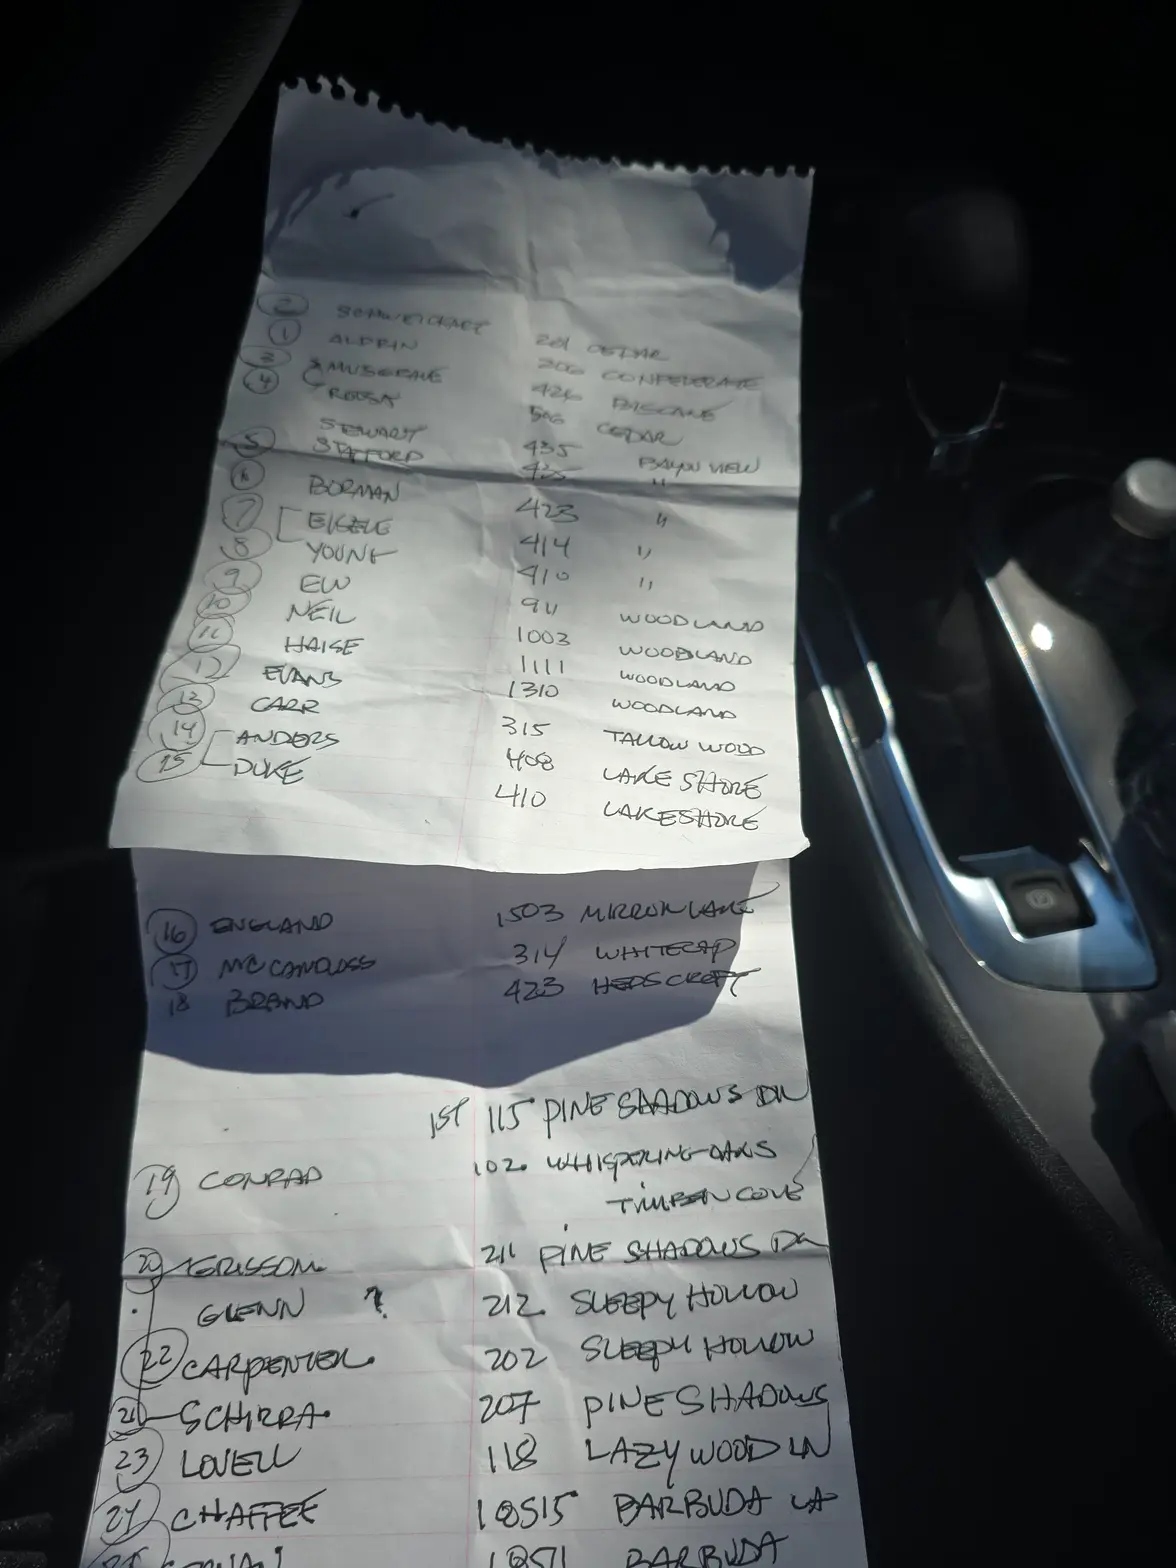 2 SCHWEICKART 201 CEDAR
1 ALDRIN 206 CONFEDERATE
3 MUSGRAVE 426 BISCANE
4 ROOSA 506 CEDAR
STEWART 435 BAYOU VIEW
5 STAFFORD 425 "
6 BORMAN 423 "
7 EISELE 414 "
8 YOUNG 410 "
9 EW 911 WOODLAND
10 NEIL 1003 WOODLAND
11 HAISE 1111 WOODLAND
12 EVANS 1310 WOODLAND
13 CARR 315 TALLOWWOOD
14 ANDERS 408 LAKESHORE
15 DUKE 410 LAKESHORE
16 ENGLAND 1503 MIRROR LAKE
17 MCCANDLESS 314 WHITECAP
18 BRAND 423
1ST 115 PINE SHADOWS DR
19 CONRAD 102 WHISPERING OAKS
TIMBER COVE
20 GRISSOM 211 PINE SHADOWS DR
GLENN ? 212 SLEEPY HOLLOW
22 CARPENTER 202 SLEEPY HOLLOW
21 SCHIRRA 207 PINE SHADOWS
23 LOVELL 118 LAZYWOOD LN
24 CHAFFEE 18515 BARBUDA LA
25 CERNAN 18511 BARBUDA